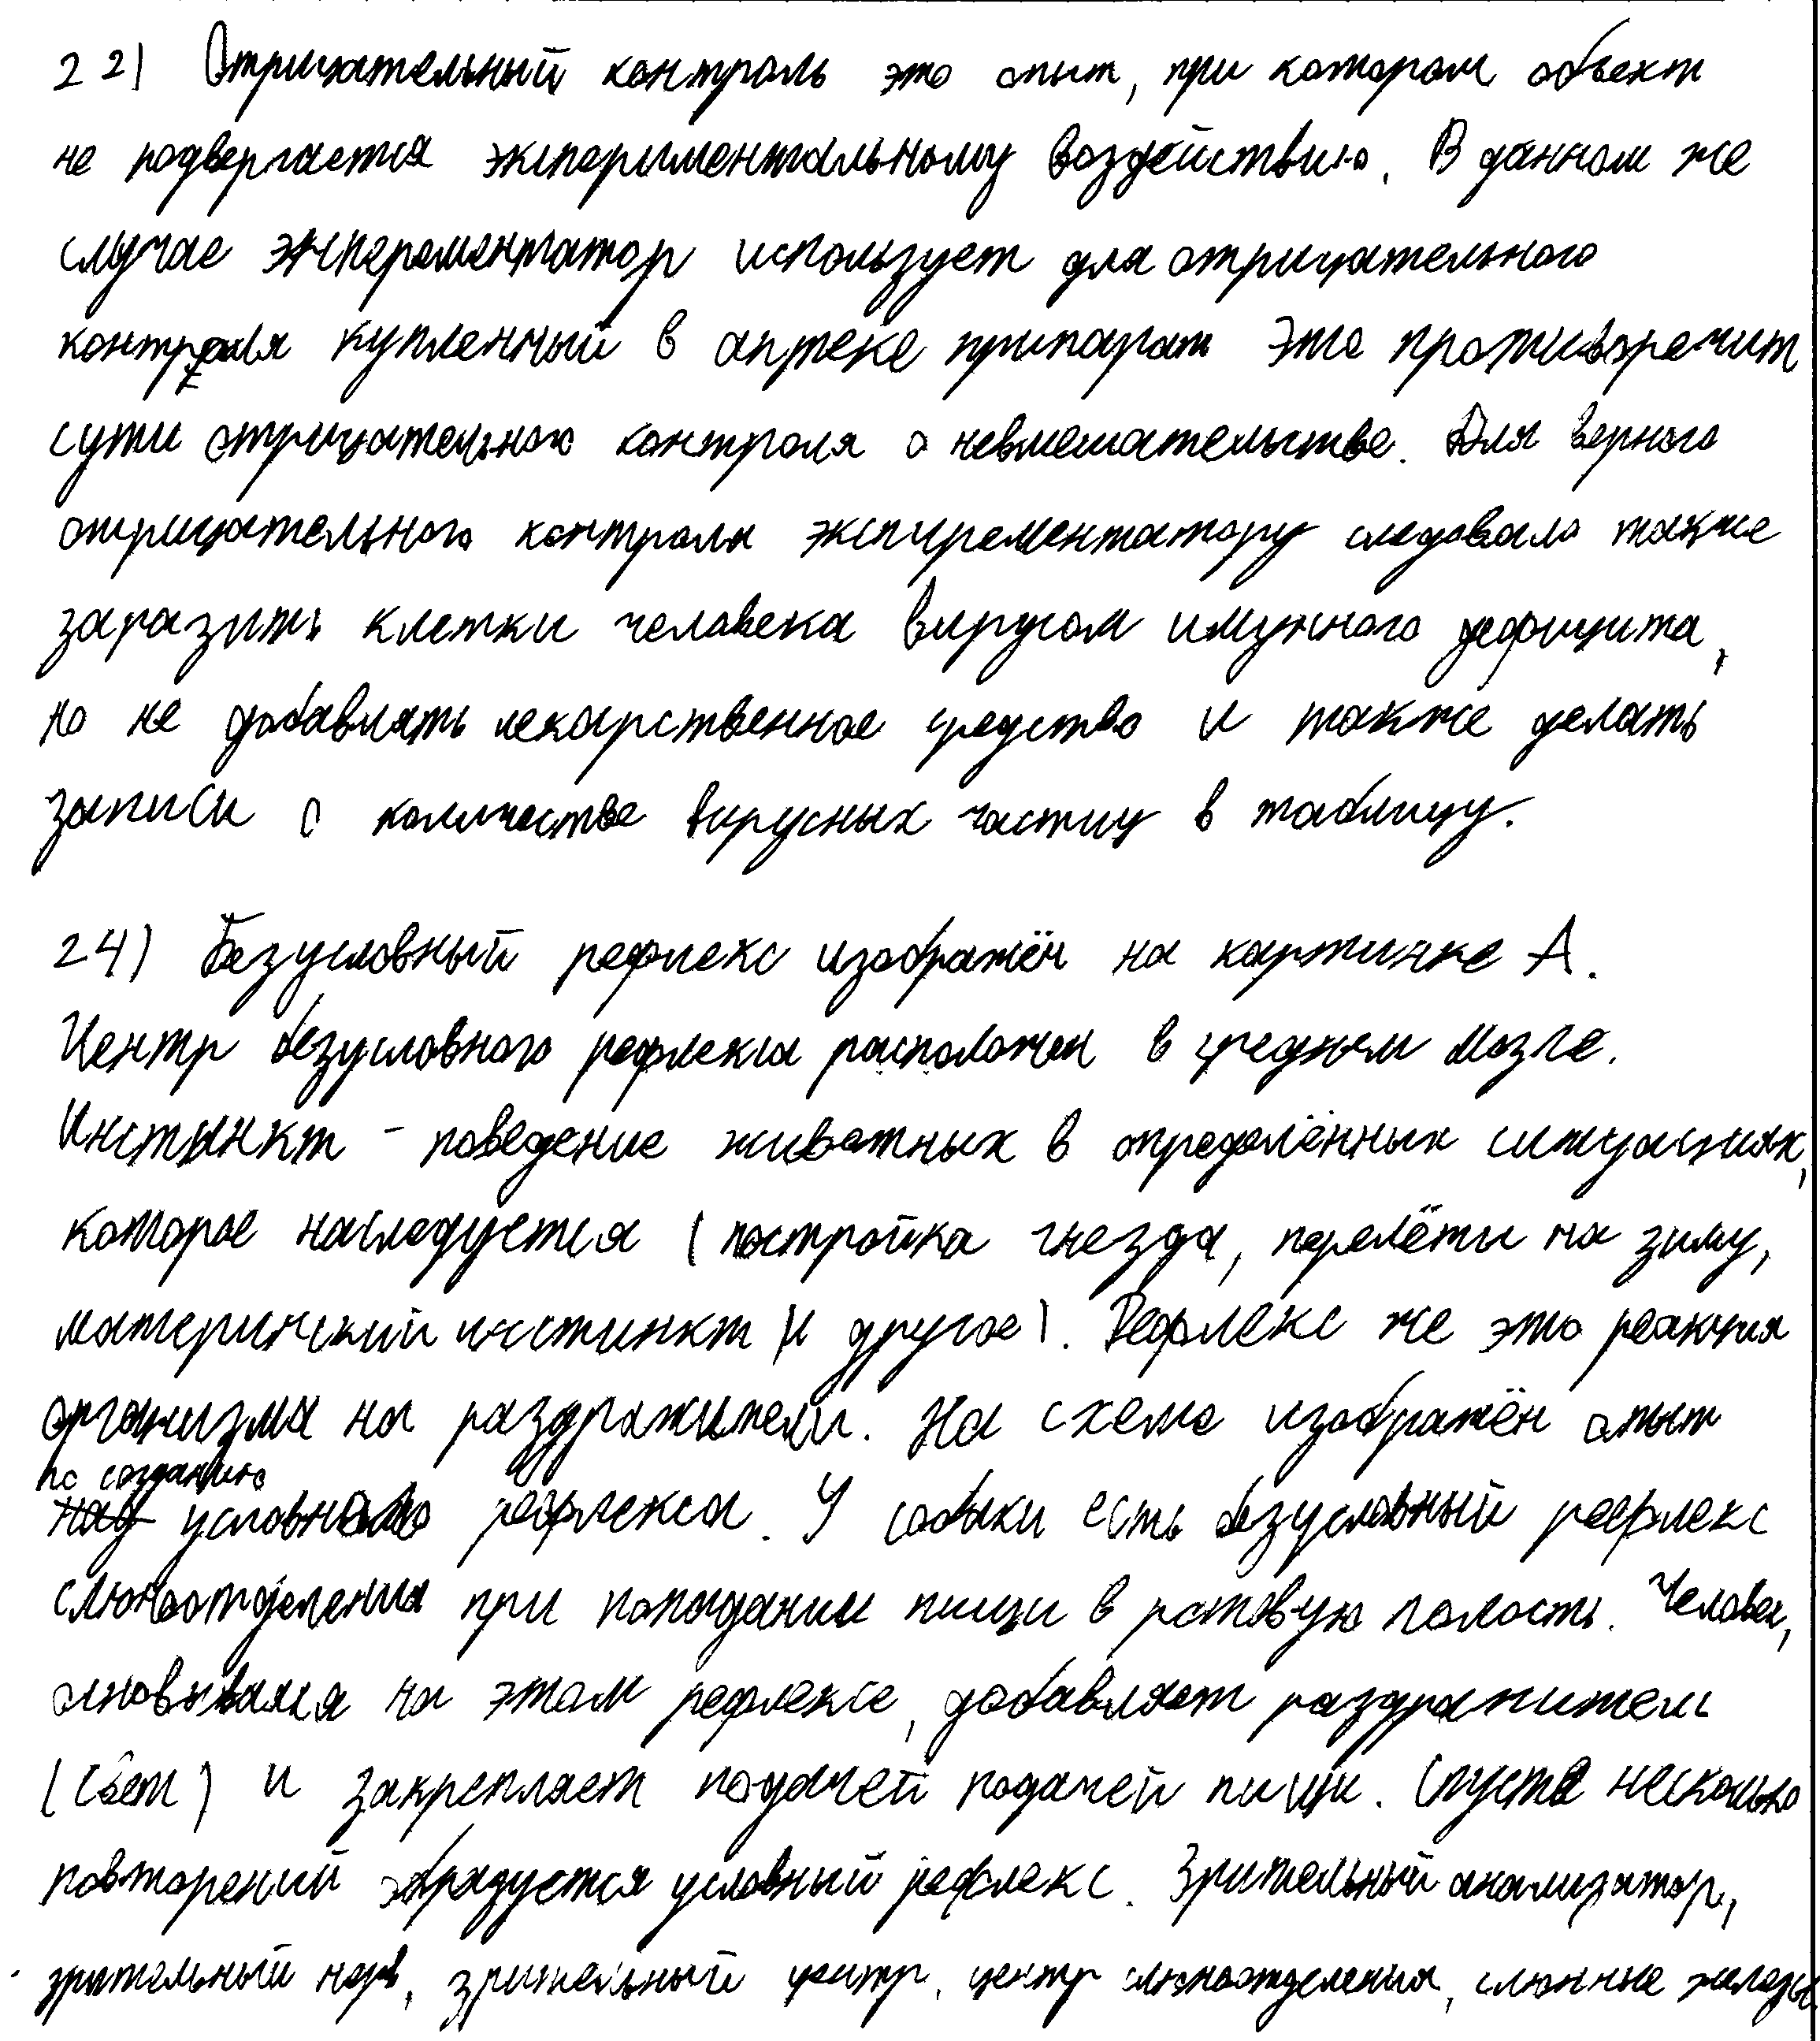 22) Отрицательный контроль это опыт, при котором объект
не подвергается экспериментальному воздействию. В данном же
случае эксперементатор использует для отрицательного
контроля купленный в аптеке припарат это противоречит
сути отрицательного контроля о невмешательстве. Для верного
отрицательного контроля экспирементатору следовало также
заразить клетки человека вирусом имунного дефицита,
но не добавлять лекарственное средство и также делать
записи о количестве вирусных частиц в таблицу.
24) Безусловный рефлекс изображён на картинке А.
Центр безусловного рефлекса расположен в среднем мозге.
Инстынкт - поведение животных в определённых ситуациях,
которое наследуется (постройка гнезда, перелёты на зиму,
материнский инстинкт и другое). Рефлекс же это реакция
организма на раздражители. На схеме изображён опыт
по созданию
над условного рефлекса. У собаки есть безусловный рефлекс
слюноотделения при попадании пищи в ротовую полость. Человек,
основываяся на этом рефлексе, добавляет раздражитель
(свет) и закрепляет подачей подачей пищи. Спустя несколько
повторений образуется условный рефлекс. Зрительный анализатор,
зрительный нерв, зрительный центр, центр слюноотделения, слюнные железы